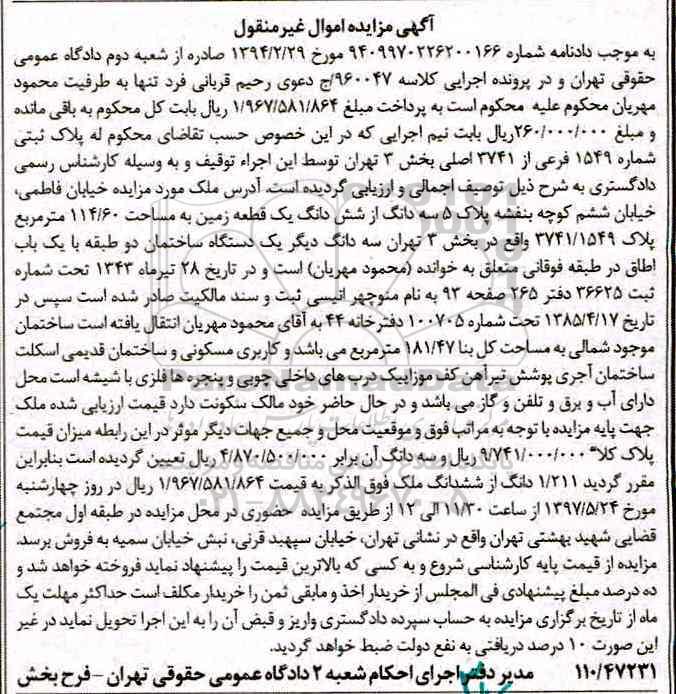 آگهی مزایده اموال غیر منقول
به موجب دادنامه شماره ۹۴۰۹۹۷۰۲۲۶۲۰۰۱۶۶ مورخ ۱۳۹۴/۲/۲۹ صادره از شعبه دوم دادگاه عمومی
حقوقی تهران و در پرونده اجرایی کلاسه ۹۶۰۰۴۷/ج دعوی رحیم قربانی فرد تنها به طرفیت محمود
مهریان محکوم علیه محکوم است به پرداخت مبلغ ۱/۹۶۷/۵۸۱/۸۶۴ ریال بابت کل محکوم به باقی مانده
و مبلغ ۲۶۰/۰۰۰/۰۰۰ریال بابت نیم اجرایی که در این خصوص حسب تقاضای محکوم له پلاک ثبتی
شماره ۱۵۴۹ فرعی از ۳۷۴۱ اصلی بخش ۳ تهران توسط این اجراء توقیف و به وسیله کارشناس رسمی
دادگستری به شرح ذیل توصیف اجمالی و ارزیابی گردیده است. آدرس ملک مورد مزایده خیابان فاطمی،
خیابان ششم کوچه بنفشه پلاک ۵ سه دانگ از شش دانگ یک قطعه زمین به مساحت ۱۱۴/۶۰ مترمربع
پلاک ۳۷۴۱/۱۵۴۹ واقع در بخش ۳ تهران سه دانگ دیگر یک دستگاه ساختمان دو طبقه با یک باب
اطاق در طبقه فوقانی متعلق به خوانده (محمود مهریان) است و در تاریخ ۲۸ تیرماه ۱۳۴۳ تحت شماره
ثبت ۳۶۶۲۵ دفتر ۲۶۵ صفحه ۹۳ به نام منوچهر انیسی ثبت و سند مالکیت صادر شده است سپس در
تاریخ ۱۳۸۵/۴/۱۷ تحت شماره ۱۰۰۷۰۵ دفترخانه ۴۴ به آقای محمود مهریان انتقال یافته است ساختمان
موجود شمالی به مساحت کل بنا ۱۸۱/۴۷ مترمربع می باشد و کاربری مسکونی و ساختمان قدیمی اسکلت
ساختمان آجری پوشش تیرآهن کف موزاییک درب های داخلی چوبی و پنجره ها فلزی با شیشه است محل
دارای آب و برق و تلفن و گاز می باشد و در حال حاضر خود مالک سکونت دارد قیمت ارزیابی شده ملک
جهت پایه مزایده با توجه به مراتب فوق و موقعیت محل و جمیع جهات دیگر موثر در این رابطه میزان قیمت
پلاک کلا" ۹/۷۴۱/۰۰۰/۰۰۰ ریال و سه دانگ آن برابر ۴/۸۷۰/۵۰۰/۰۰۰ ریال تعیین گردیده است بنابراین
مقرر گردید ۱/۲۱۱ دانگ از ششدانگ ملک فوق الذکر به قیمت ۱/۹۶۷/۵۸۱/۸۶۴ ریال در روز چهارشنبه
مورخ ۱۳۹۷/۵/۲۴ از ساعت ۱۱/۳۰ الی ۱۲ از طریق مزایده حضوری در محل مزایده در طبقه اول مجتمع
قضایی شهید بهشتی تهران واقع در نشانی تهران، خیابان سپهبد قرنی، نبش خیابان سمیه به فروش برسد.
مزایده از قیمت پایه کارشناسی شروع و به کسی که بالاترین قیمت را پیشنهاد نماید فروخته خواهد شد و
ده درصد مبلغ پیشنهادی فی المجلس از خریدار اخذ و مابقی ثمن را خریدار مکلف است حداکثر مهلت یک
ماه از تاریخ برگزاری مزایده به حساب سپرده دادگستری واریز و قبض آن را به این اجرا تحویل نماید در غیر
این صورت ۱۰ درصد دریافتی به نفع دولت ضبط خواهد گردید.
۱۱۰/۴۷۲۳۱ مدیر دفتر اجرای احکام شعبه ۲ دادگاه عمومی حقوقی تهران - فرح بخش